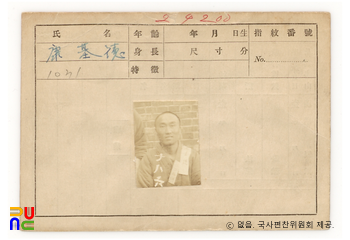 29200
氏名 年齡 年月日生 指紋番號
康基德 身長 尺寸分 No.
1031 特徵
一八六
© 없음, 국사편찬위원회 제공.